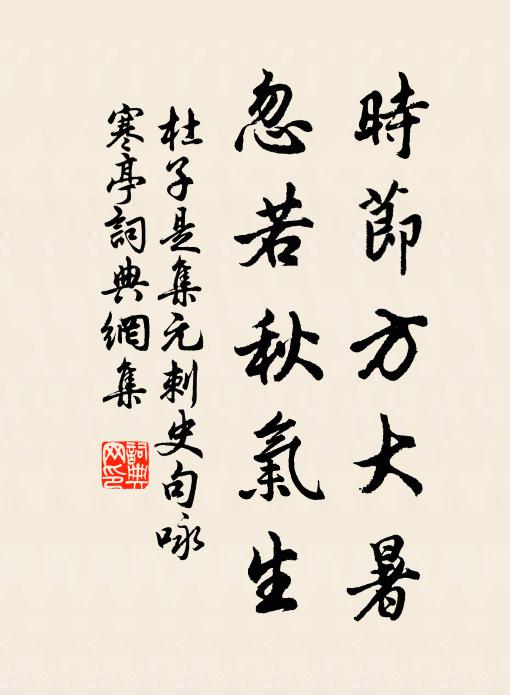 時節方大暑
忽若秋氣生
杜子是集元刺史句咏
寒亭詞典網集
詞典
网印